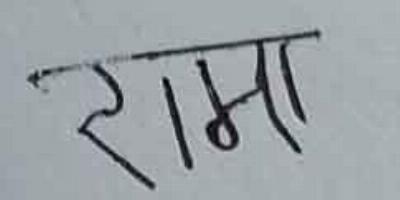 रामा